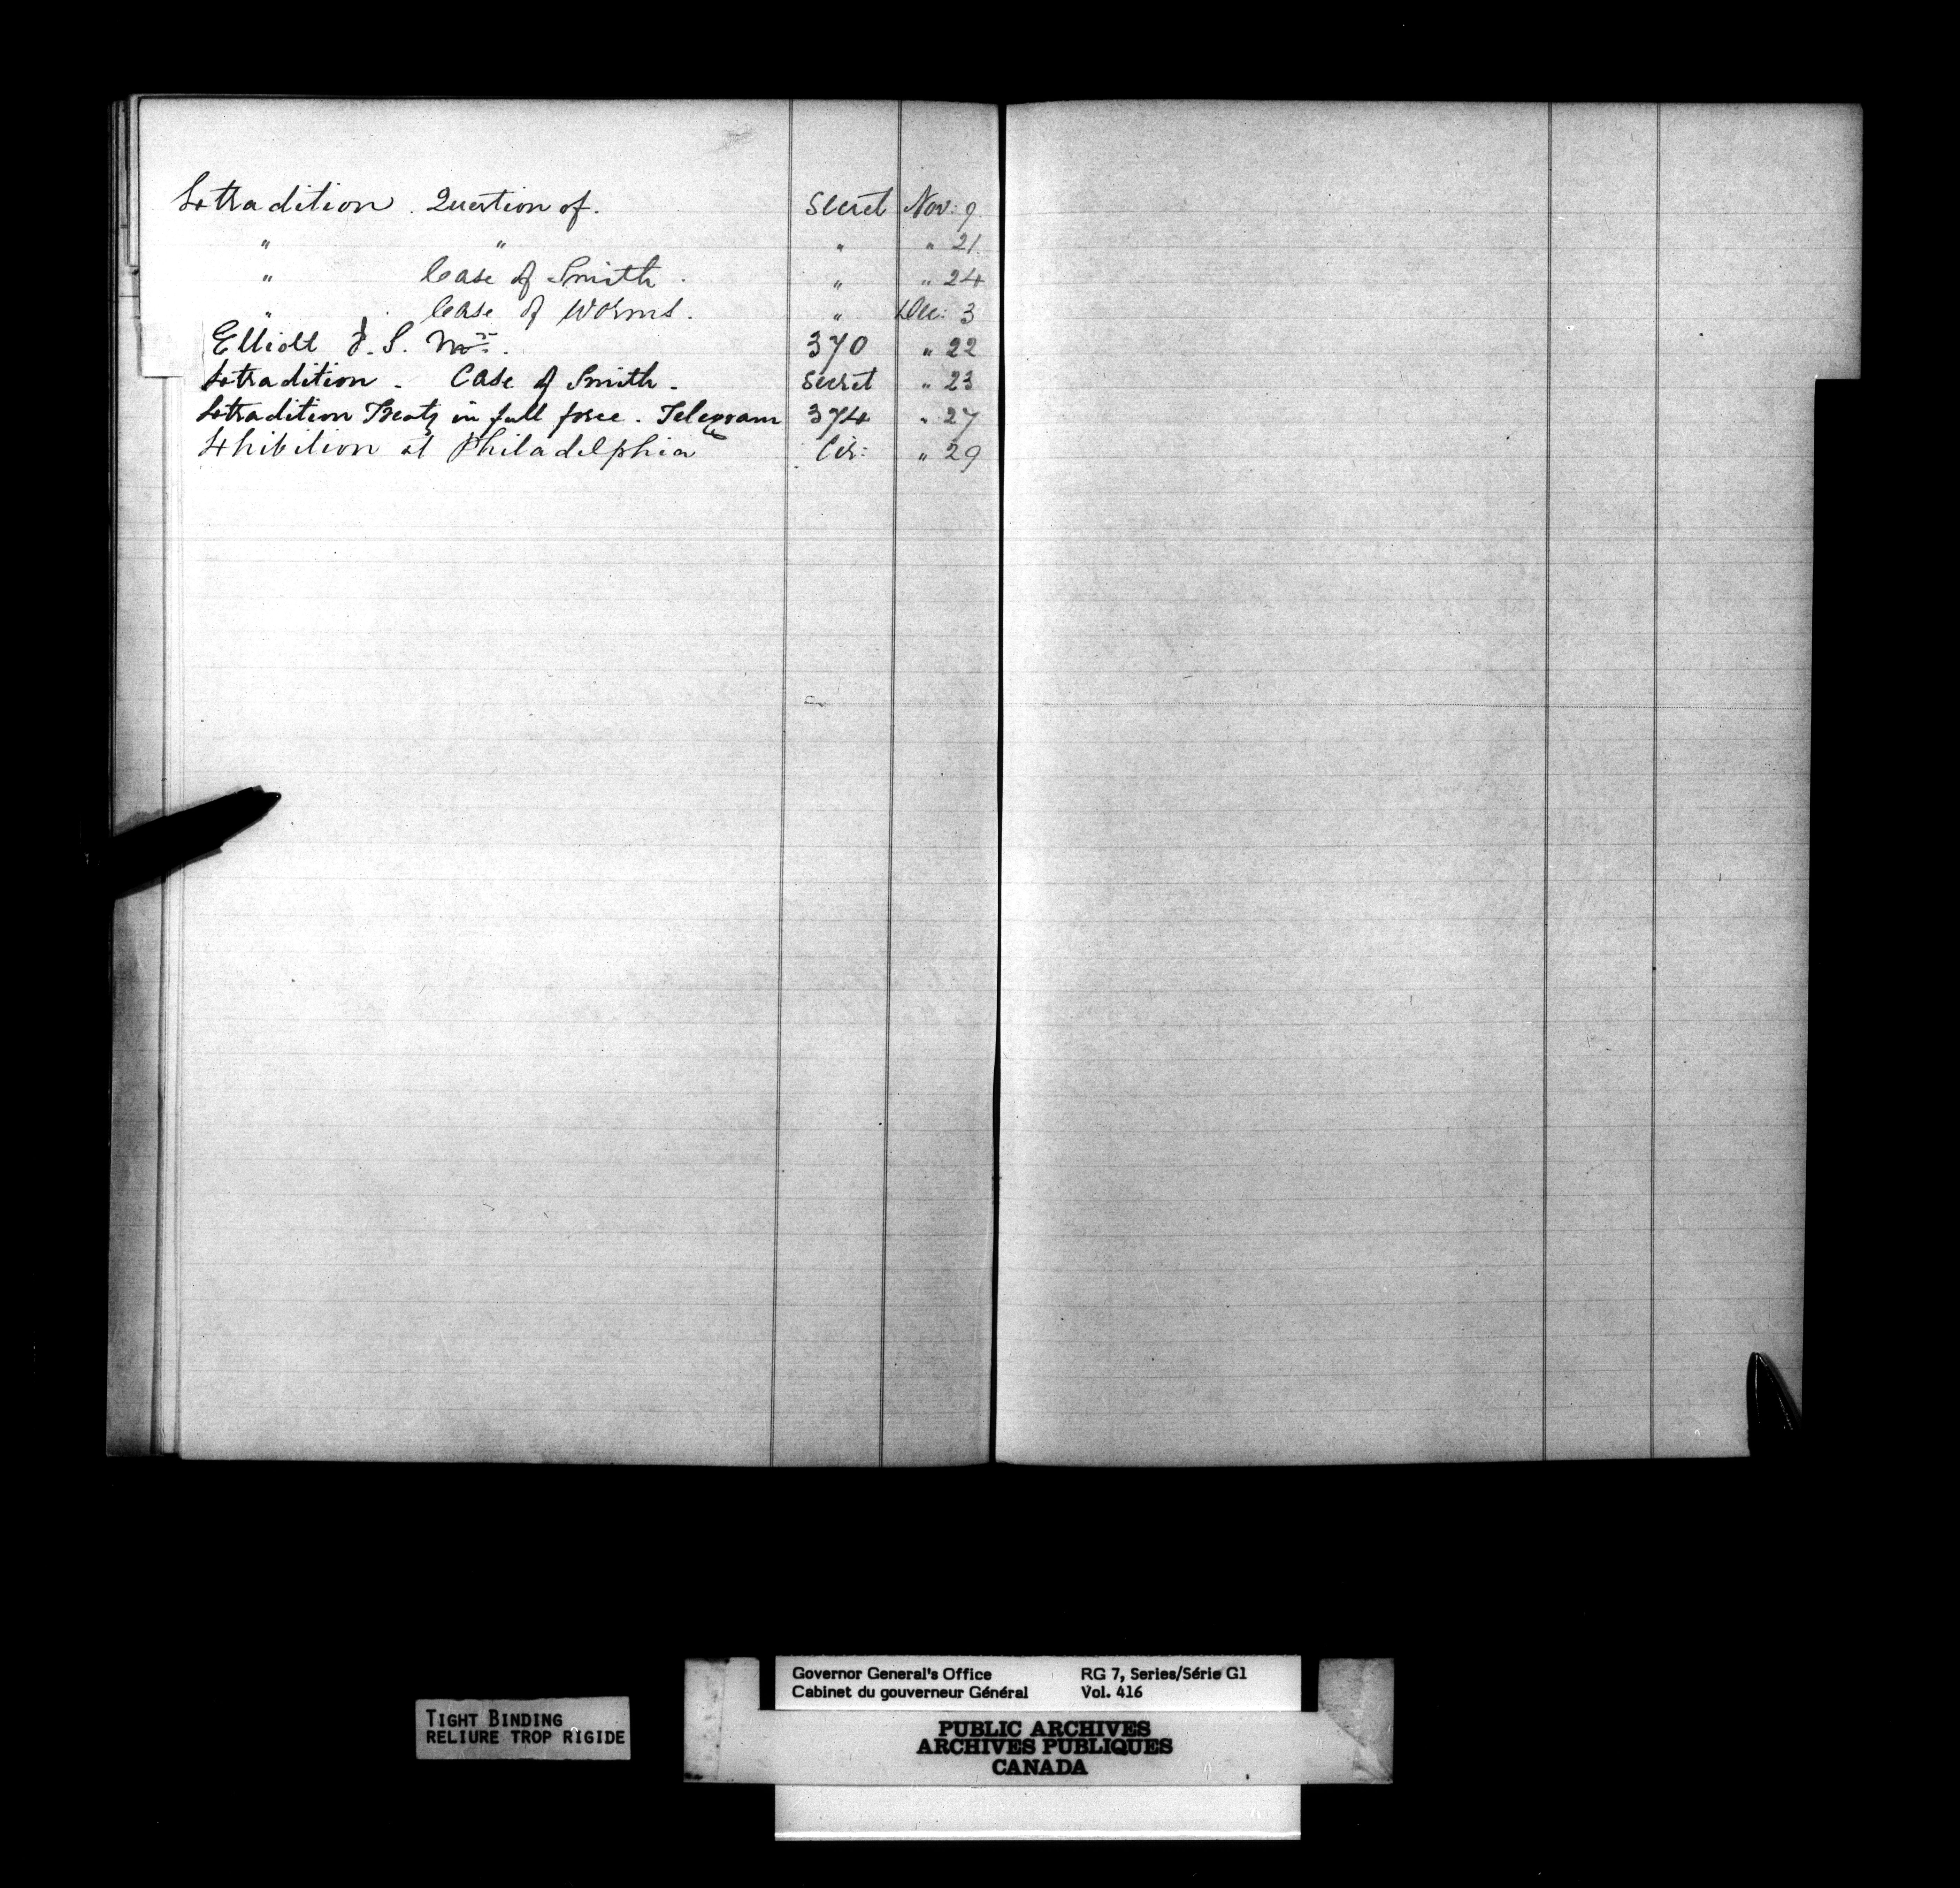 Extradition. Question of. Secret Nov: 9.
" " " " 21.
" Case of Smith. " " 24
" Case of Worms. " Dec: 3
Elliott J. S. 370 " 22
Extradition - Case of Smith - Secret " 23
Extradition Treaty in full force. Telegram 374 " 27
Exhibition at Philadelphia Cir: " 29
TIGHT BINDING
RELIURE TROP RIGIDE
Governor General's Office RG 7, Series/Série G1
Cabinet du gouverneur Général Vol. 416
PUBLIC ARCHIVES
ARCHIVES PUBLIQUES
CANADA